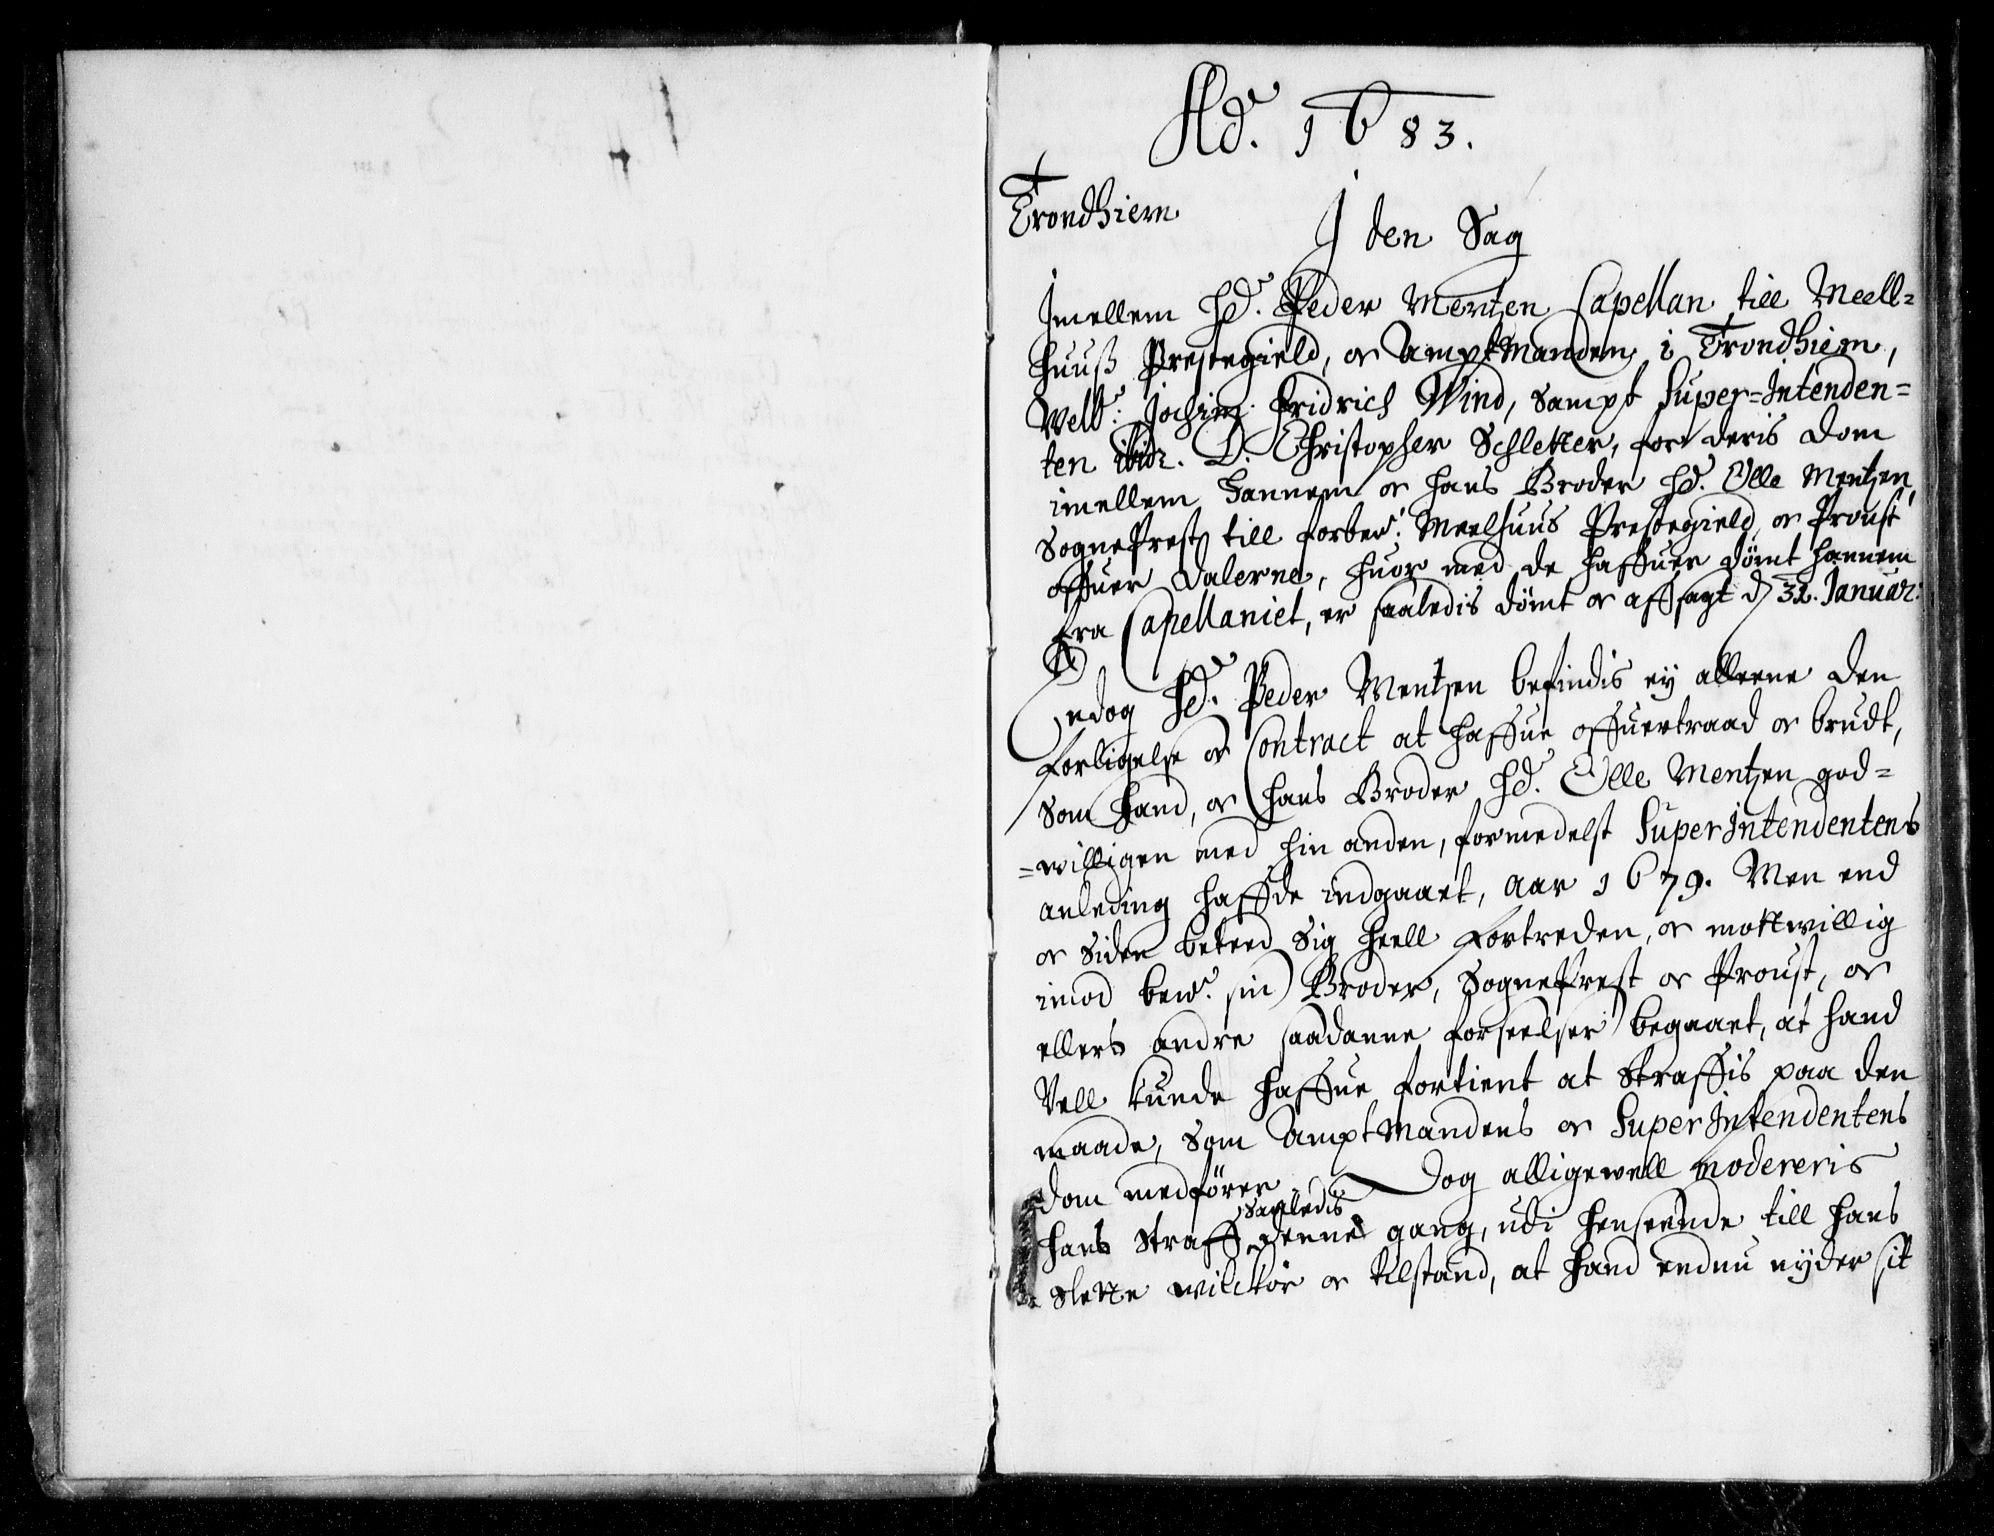 Ad. 1683.
Trondhiem
J den Sag
Jmellem Hd. Peder Mentzen Capellan till Meell=
huuß Prestegield, or Amptmanden i Trondhiem,
Welb: Jochim Fridrich Wind, sampt Super=Intenden=
ten ibid. D. Christopher Schletter, for deris dom
imellem hannem or hans Broder Hd. Olle Mentzen,
SognePrest till forbed: Meelhuus Prestegield, or Proust
offuer Dalerne, huor med de haffuer dømt hannem
fra Capellaniet, er saaledis dømt or affsagt d 31. Januar:
Endog Hd. Peder Mentzen befindis ey alleene den
forligelse or Contract at haffue offuertraad or brudt,
som hand, or hans Broder Hd. Olle Mentzen god=
=willigen med hin anden, formedelst SuperIntendentens
anleding haffde indgaaet, aar 1679. Men end
or siden beteed sig heell fortreden, or mottwillig
imod bewd. sin Broder, SognePrest or Proust, or
ellers andre saadanne forseelser begaaet, at hand
Vell kunde haffue fortient at straffis paa den
maade, som Amptmandens or SuperIntendentens
dom medfører. Dog alligewell modereris
hans straff saaledis denne gang, udi henseende till hans
slette wilckor or tilstand, at hand endnu nyder sit